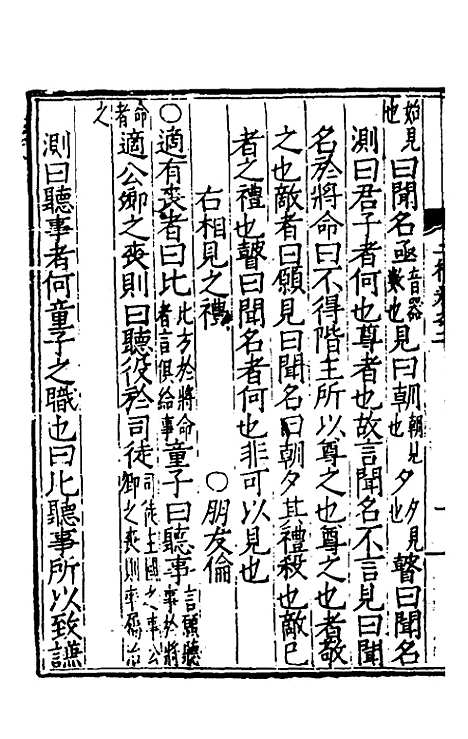 始見也曰聞名亟音器數也見曰朝朝見也夕夕見也瞽曰聞名
測曰君子者何也尊者也故言聞名不言見曰聞
名於將命曰不得階主所以尊之也尊之也者敬
之也敵者曰願見曰聞名曰朝夕其禮殺也敵已
者之禮也瞽曰聞名者何也非可以見也
右相見之禮 ○朋友倫
○適有喪者曰比比方於將命者言俱給事童子曰聽事言願聽事於將命者
適公卿之喪則曰聽役於司徒司徒主國之事公卿之喪則率屬治之
測曰聽事者何童子之職也曰比聽事所以致謙